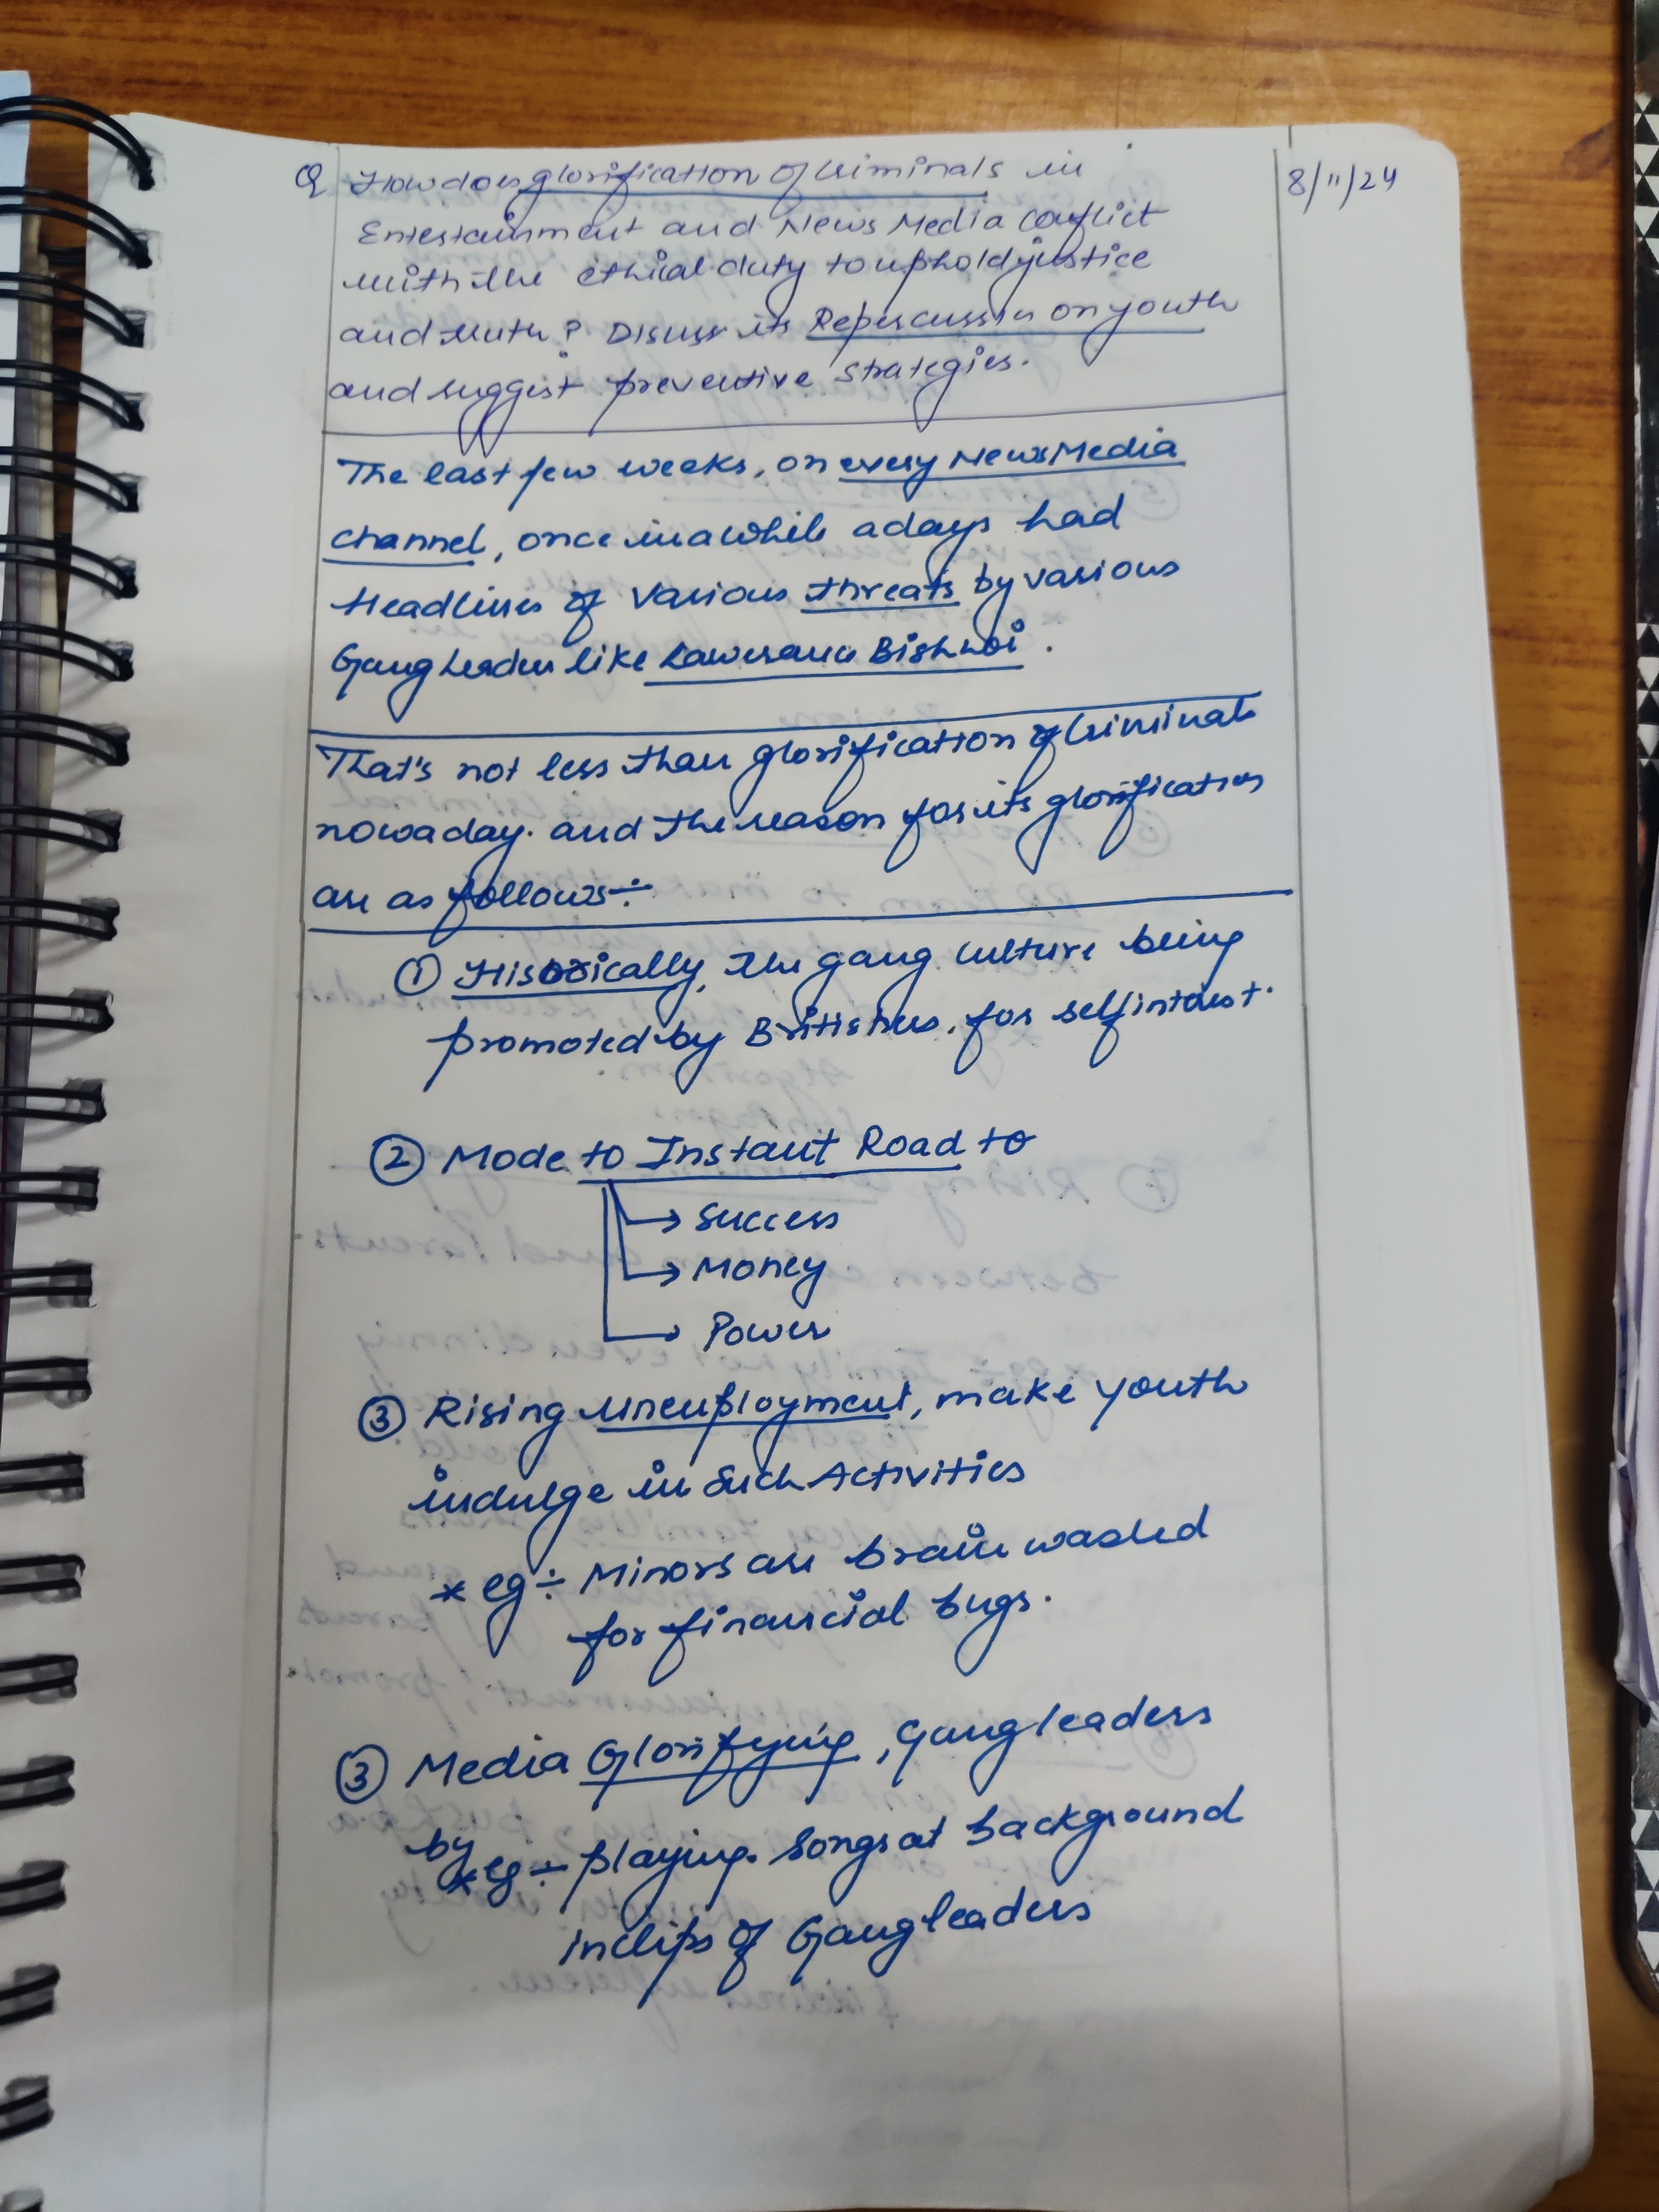 Q How does glorification of Criminals in
8/11/24
Entertainment and News Media conflict
with the ethical duty to uphold justice
and truth? Discuss its Repercussion on youth
and suggest preventive strategies.
The last few weeks, on every News Media
channel, once in a while a days had
Headlines of various threats by various
Gang Leader like Lawerance Bishnoi.
That's not less than glorification of Criminals
nowaday. and the reason for its glorification
are as follows:-
① Historically, the gang culture being
promoted by Britishers, for self interest.
② Mode to Instant Road to
→ Success
→ Money
→ Power
③ Rising Unemployment, make youth
indulge in Such Activities
* eg:- Minors are brain washed
for financial bugs.
③ Media Glorifying, Gang leaders
by
* eg:- playing. Songs at background
in clips of Gang leaders